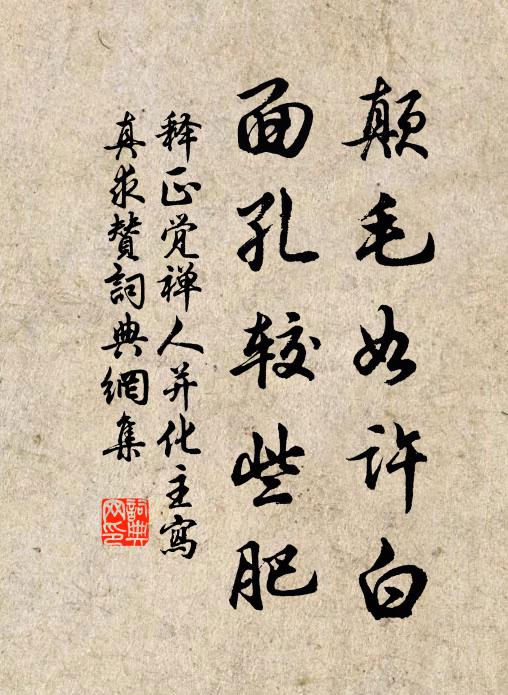 颠毛如许白
面孔较些肥
释正觉禅人并化主写
真求赞詞典網集
詞典网印